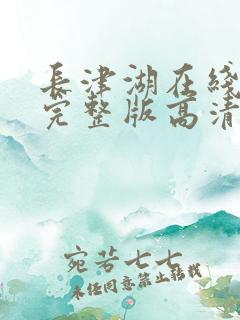 長津湖在綫
完整版高清
宛若七七
未经同意禁止转载